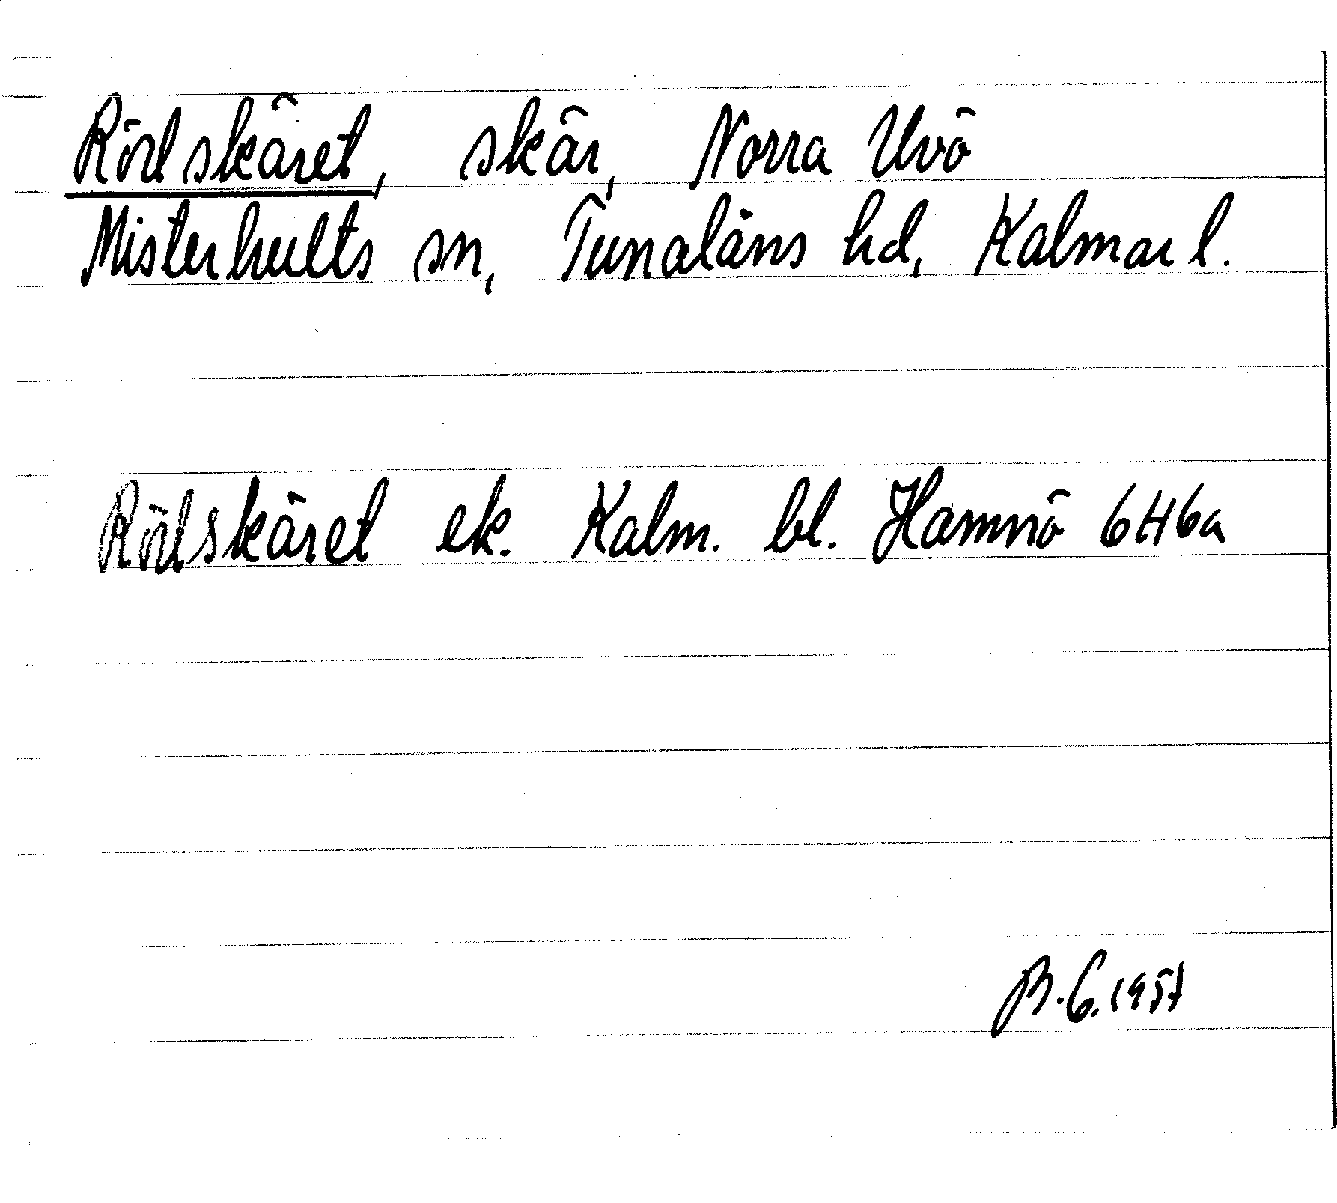 Rödskäret, skär, Norra Uvö
Misterhults sn, Tunaläns hd, Kalmar l.
Rödskäret ek. Kalm. bl. Hamnö 6H6a
B.G. 1957